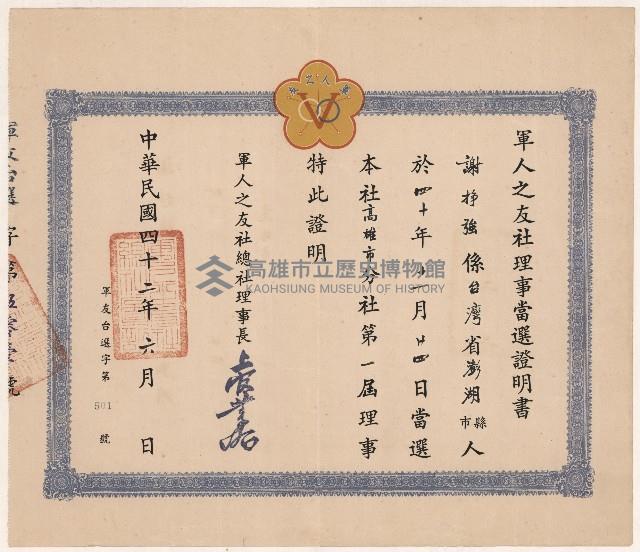 軍人之友社理事當選證明書
謝掙強係台灣省澎湖縣市人
於四十年十一月廿四日當選
本社高雄市分社第一屆理事
特此證明
軍人之友社總社理事長
中華民國四十二年六月 日
軍友台選字第
501
號
高雄市立歷史博物館
KAOHSIUNG MUSEUM OF HISTORY